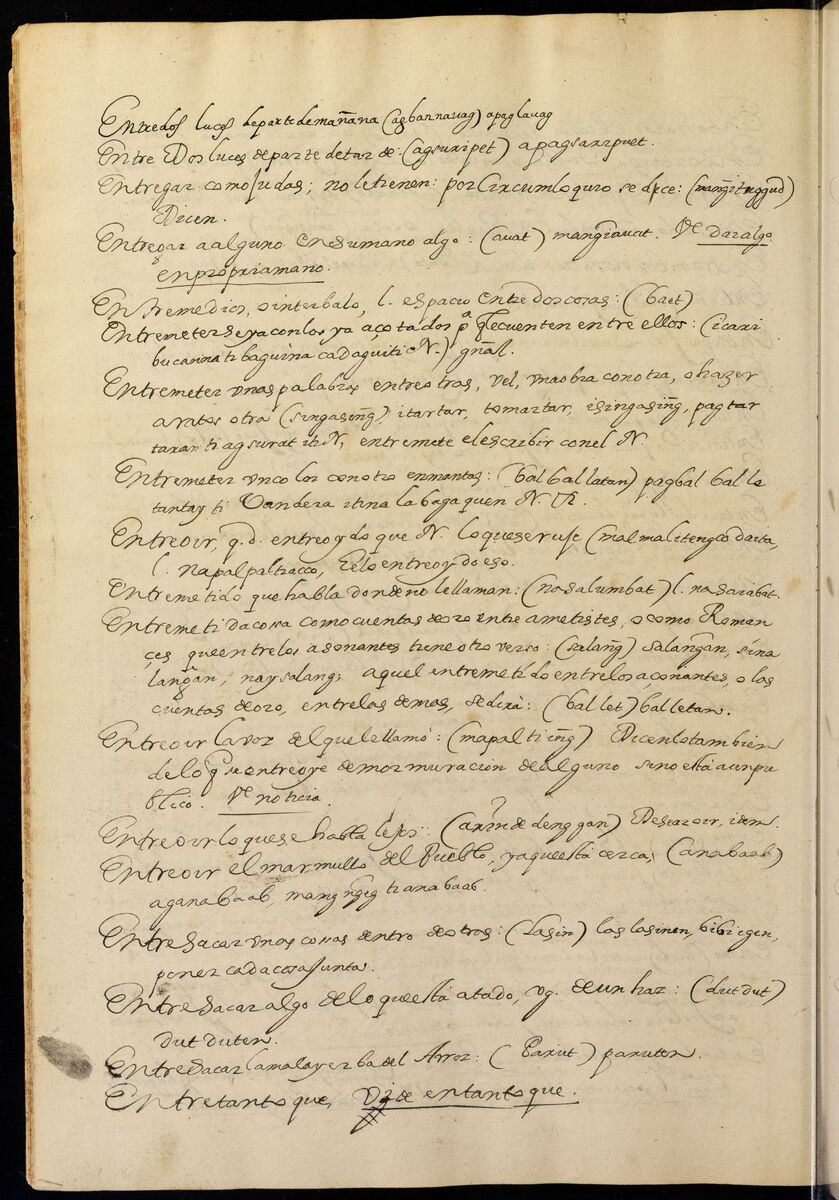 Entre dos luces departe de mañana (agbannauag) apaglauag
Entre Dos luces departe detar de: (agsuripet) apagsaripuet.
Entregar como Judas; no le tienen: por Circumloquio se dice:
Dicen.
Entregar a alguno en su mano algo: (auat) mangiauat. Ve. dar algo
en propria mano.
Entremedios, o interbalo, l. espacio entre dos cosas: (baet)
Entremeterse ya con los ya açotados pa. q̃ le cuenten entre ellos: (icari
bucannati baguina cadaguiti N.) gñal.
Entremeter vnas palabras entre otras, vel, vna obra con otra, o hazer
a ratos otra (singasing̃), itartar, tomartar, isingasing̃, pag tar
taran ti agsurat iti N, entremete el escribir con el N.
Entremeter vn color con otro en mantas: (bal bal latan) pagbal bal la
tantay ti Vandera itina labaga quen N.
Entreoir, q. d. entreoydo que N. lo quese ruse (malmalitengco daita,
l. napalpaltiacco, helo entreoydo eso.
Entremetido que habla donde no le llaman: (nasalumbat) l. nasarabat.
Entremetida cosa como cuentas de oro entre ametistes, o como Roman
çes que entre los asonantes tiene otro verso: (salang̃) salangan, sina
langãn, naysalang; aquel entremetido entre los açonantes, o las
cuentas de oro, entre las demas, se dirà: (ballet) balletan.
Entreoir la voz del que le llamó: (mapalti ing̃) Dicenlo tambien
de lo q̃ se entreoye de mormuracion de alguno sino està aun pu
blico. Ve. noticia.
Entreoir lo que se habla lejos: Desear oir, idem.
Entreoir el marmullo del Pueblo, ya que està cerca; (anabaab)
aganabaab, mangngeg ti anabaab.
Entresacar vnas cosas dentro de otras: (lasin) laslasinen, bibiegen,
poner cada cosa junta.
Entresacar algo de lo que està atado, vg. de un haz: (dutdut)
dutduten.
Entresacar la mala yerba del Arroz: (Parut) paruten.
Entretanto que, Vide entanto que.